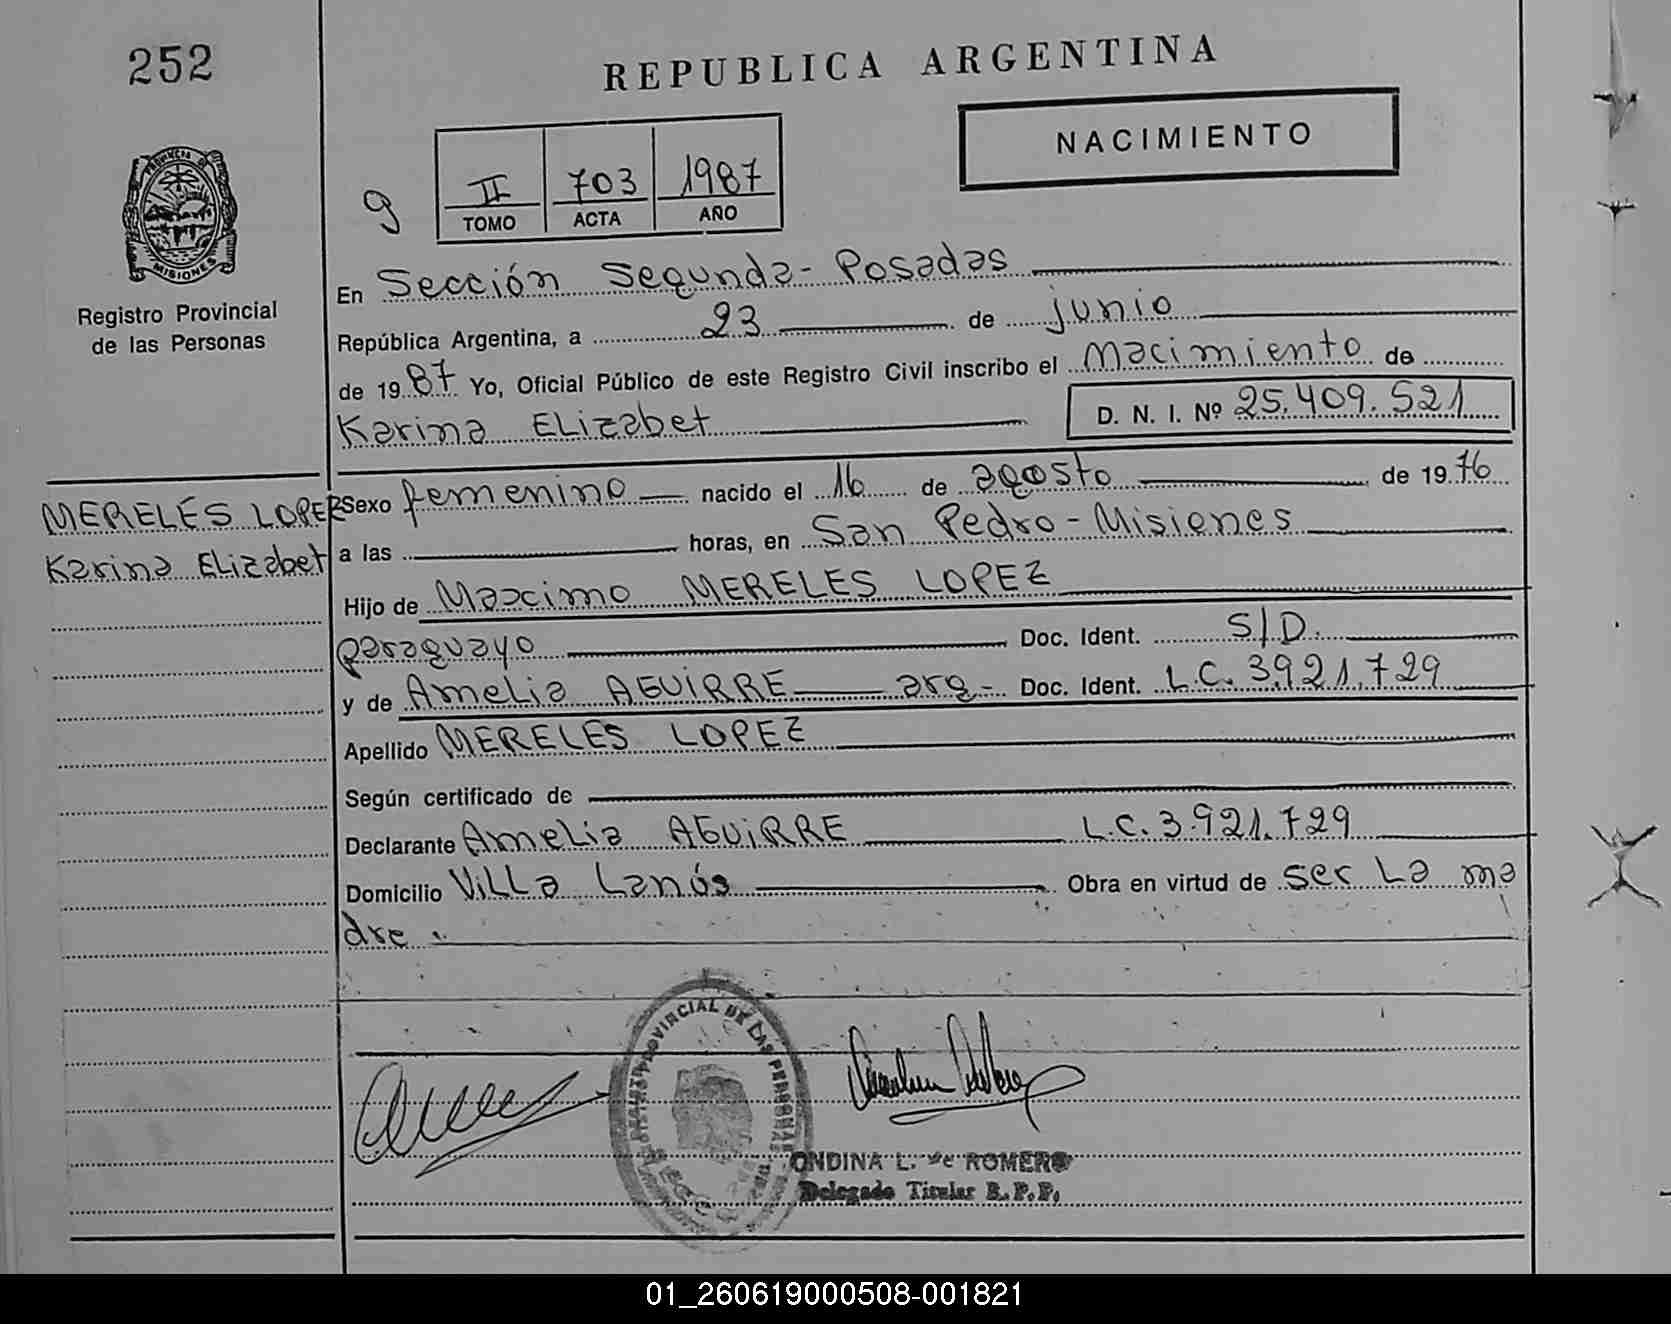 252
REPUBLICA ARGENTINA
NACIMIENTO
9
II 703 1987
TOMO ACTA AÑO
PROVINCIA DE
MISIONES
Registro Provincial
de las Personas
En Sección Segunda - Posadas
República Argentina, a 23 de junio
de 1987 Yo, Oficial Público de este Registro Civil inscribo el Nacimiento de
Karina ELizabet D. N. I. Nº 25.409.521
MERELES LOPEZ
Karina ELizabet
Sexo femenino nacido el 16 de agosto de 1976
a las horas, en San Pedro - Misiones
Hijo de Maximo MERELES LOPEZ
paraguayo Doc. Ident. S/D.
y de Amelia AGUIRRE arg- Doc. Ident. L.C. 3.921.729
Apellido MERELES LOPEZ
Según certificado de
Declarante Amelia AGUIRRE L.C. 3.921.729
Domicilio Villa Lanús Obra en virtud de ser La ma
dre.
PROVINCIAL DE LAS PERSONAS
ONDINA L. de ROMERO
Delegado Titular R.P.P.
01_260619000508-001821